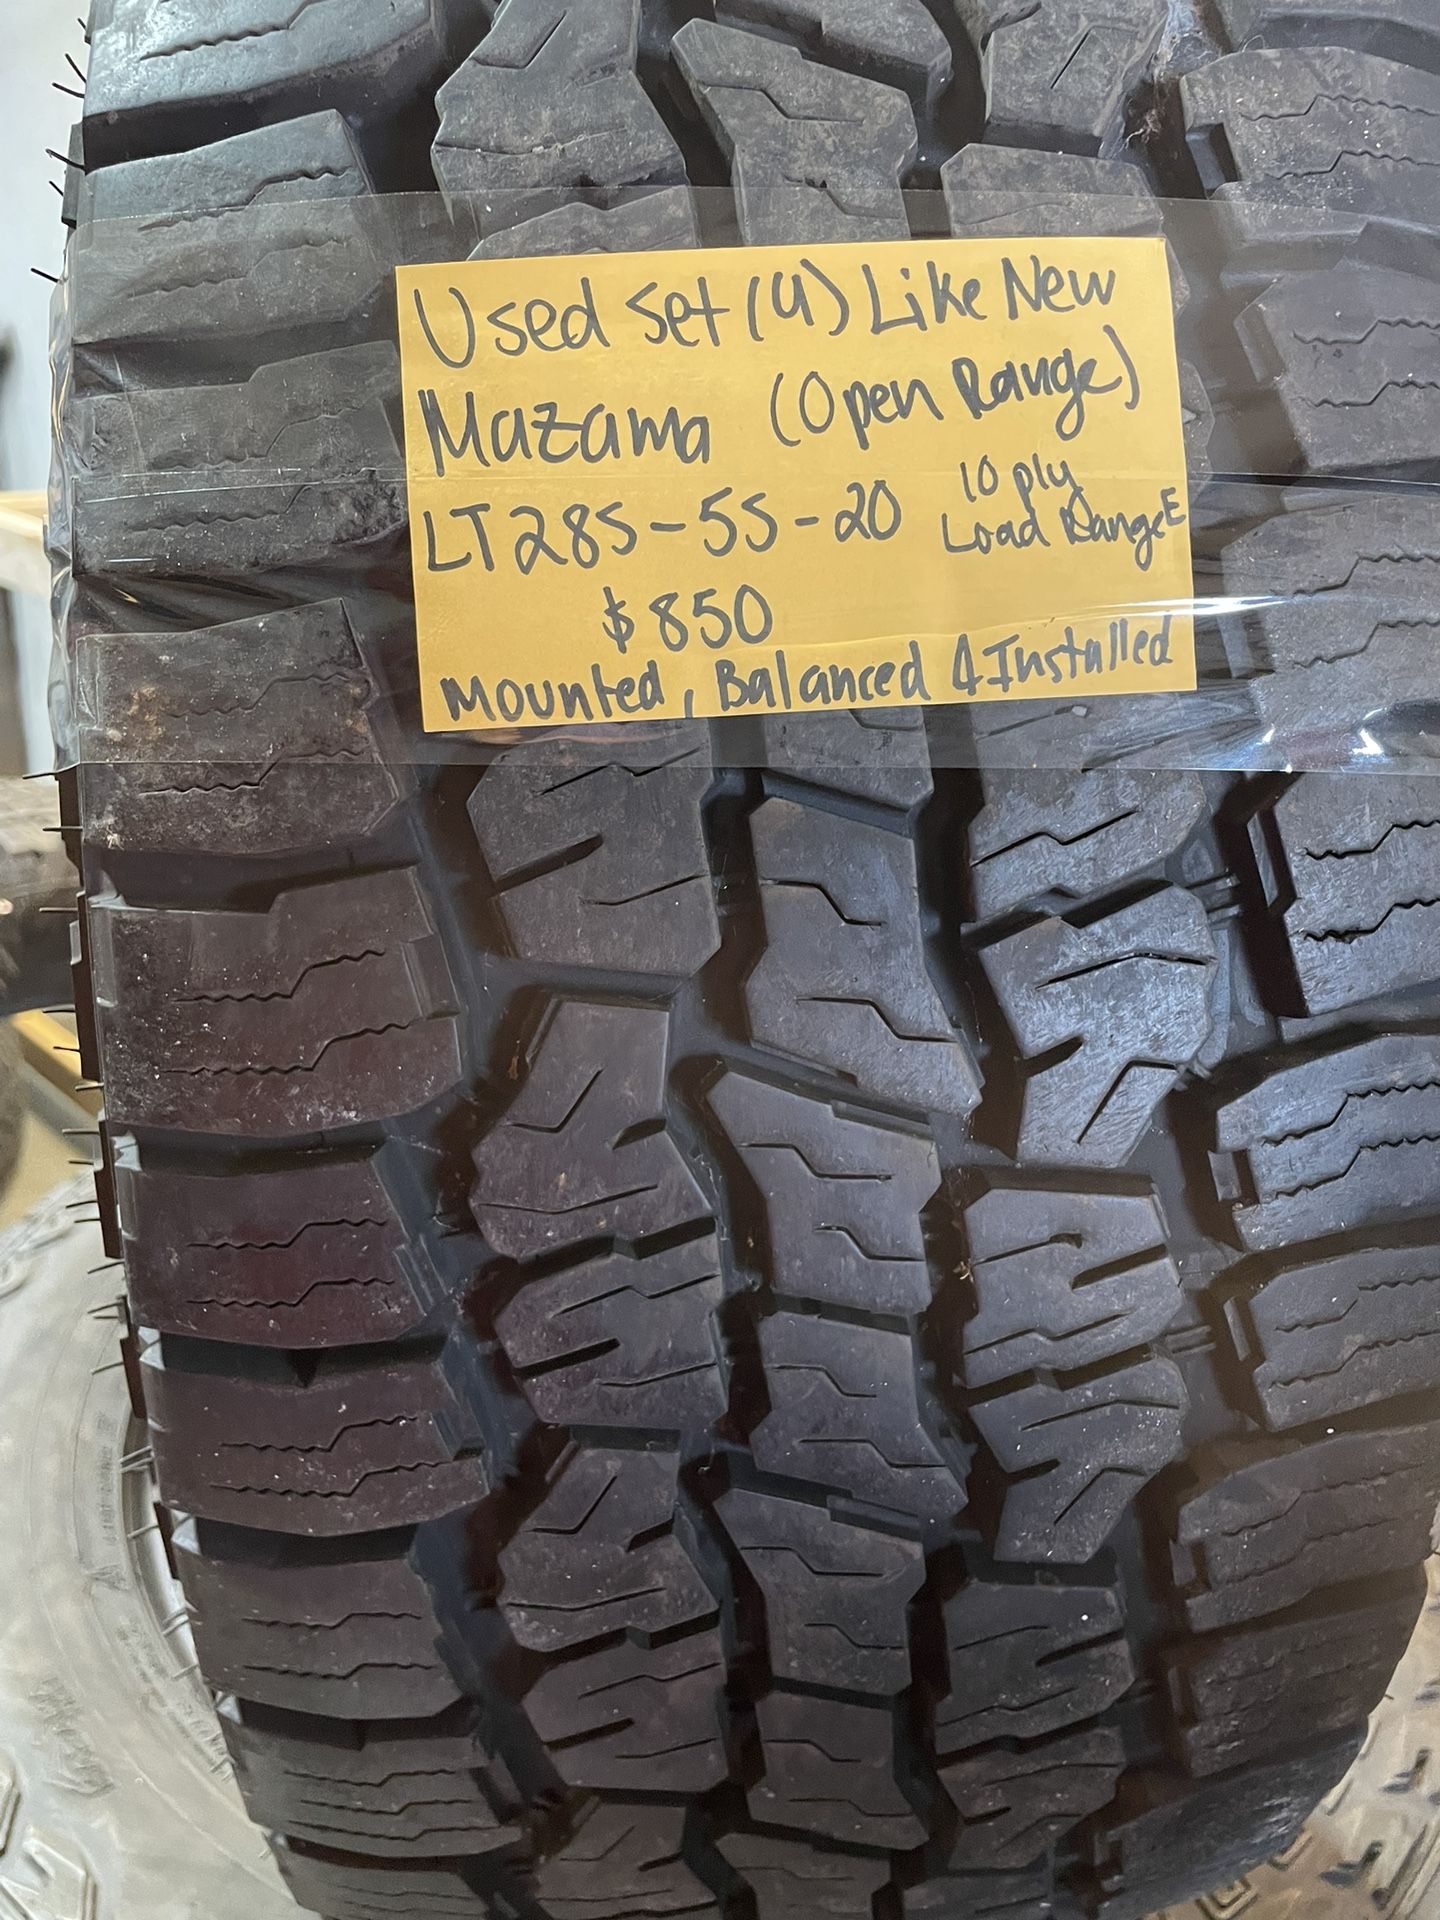 Used Set (4) Like New
Mazama (Open Range)
LT 285-55-20 10 ply
Load Range E
$850
Mounted, Balanced & Installed